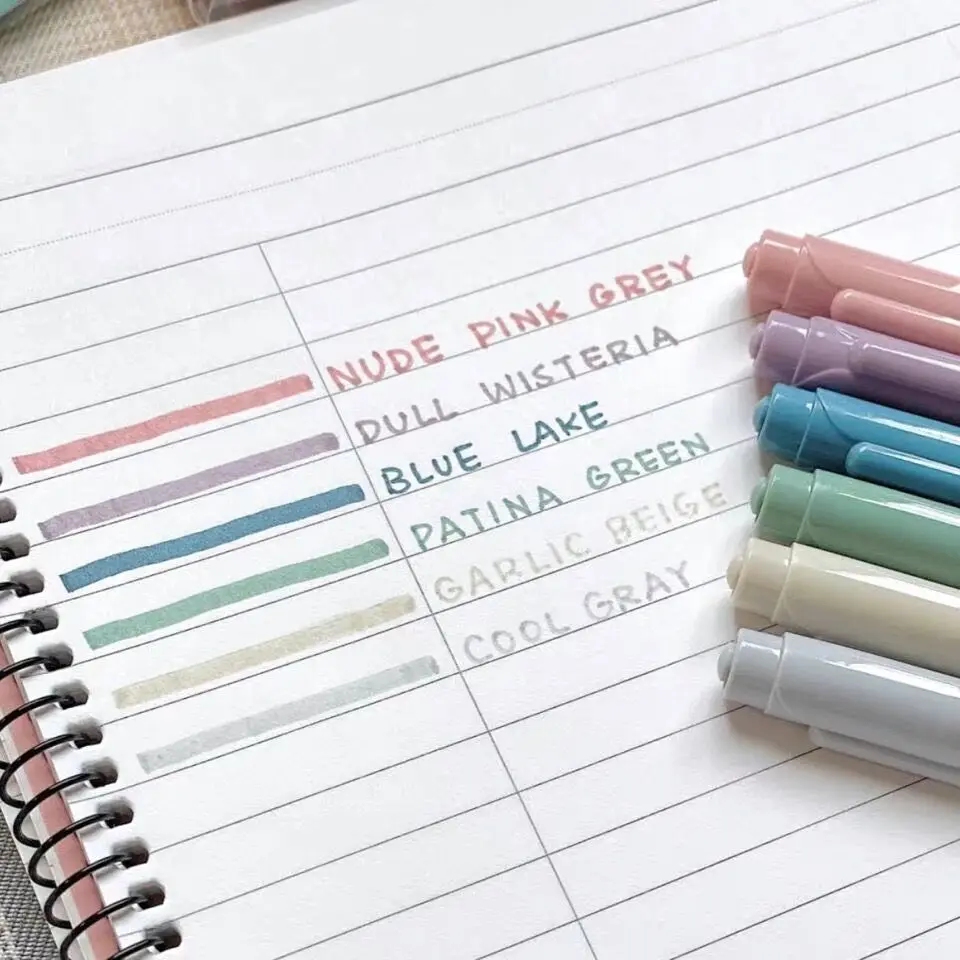 NUDE PINK GREY
DULL WISTERIA
BLUE LAKE
PATINA GREEN
GARLIC BEIGE
COOL GRAY